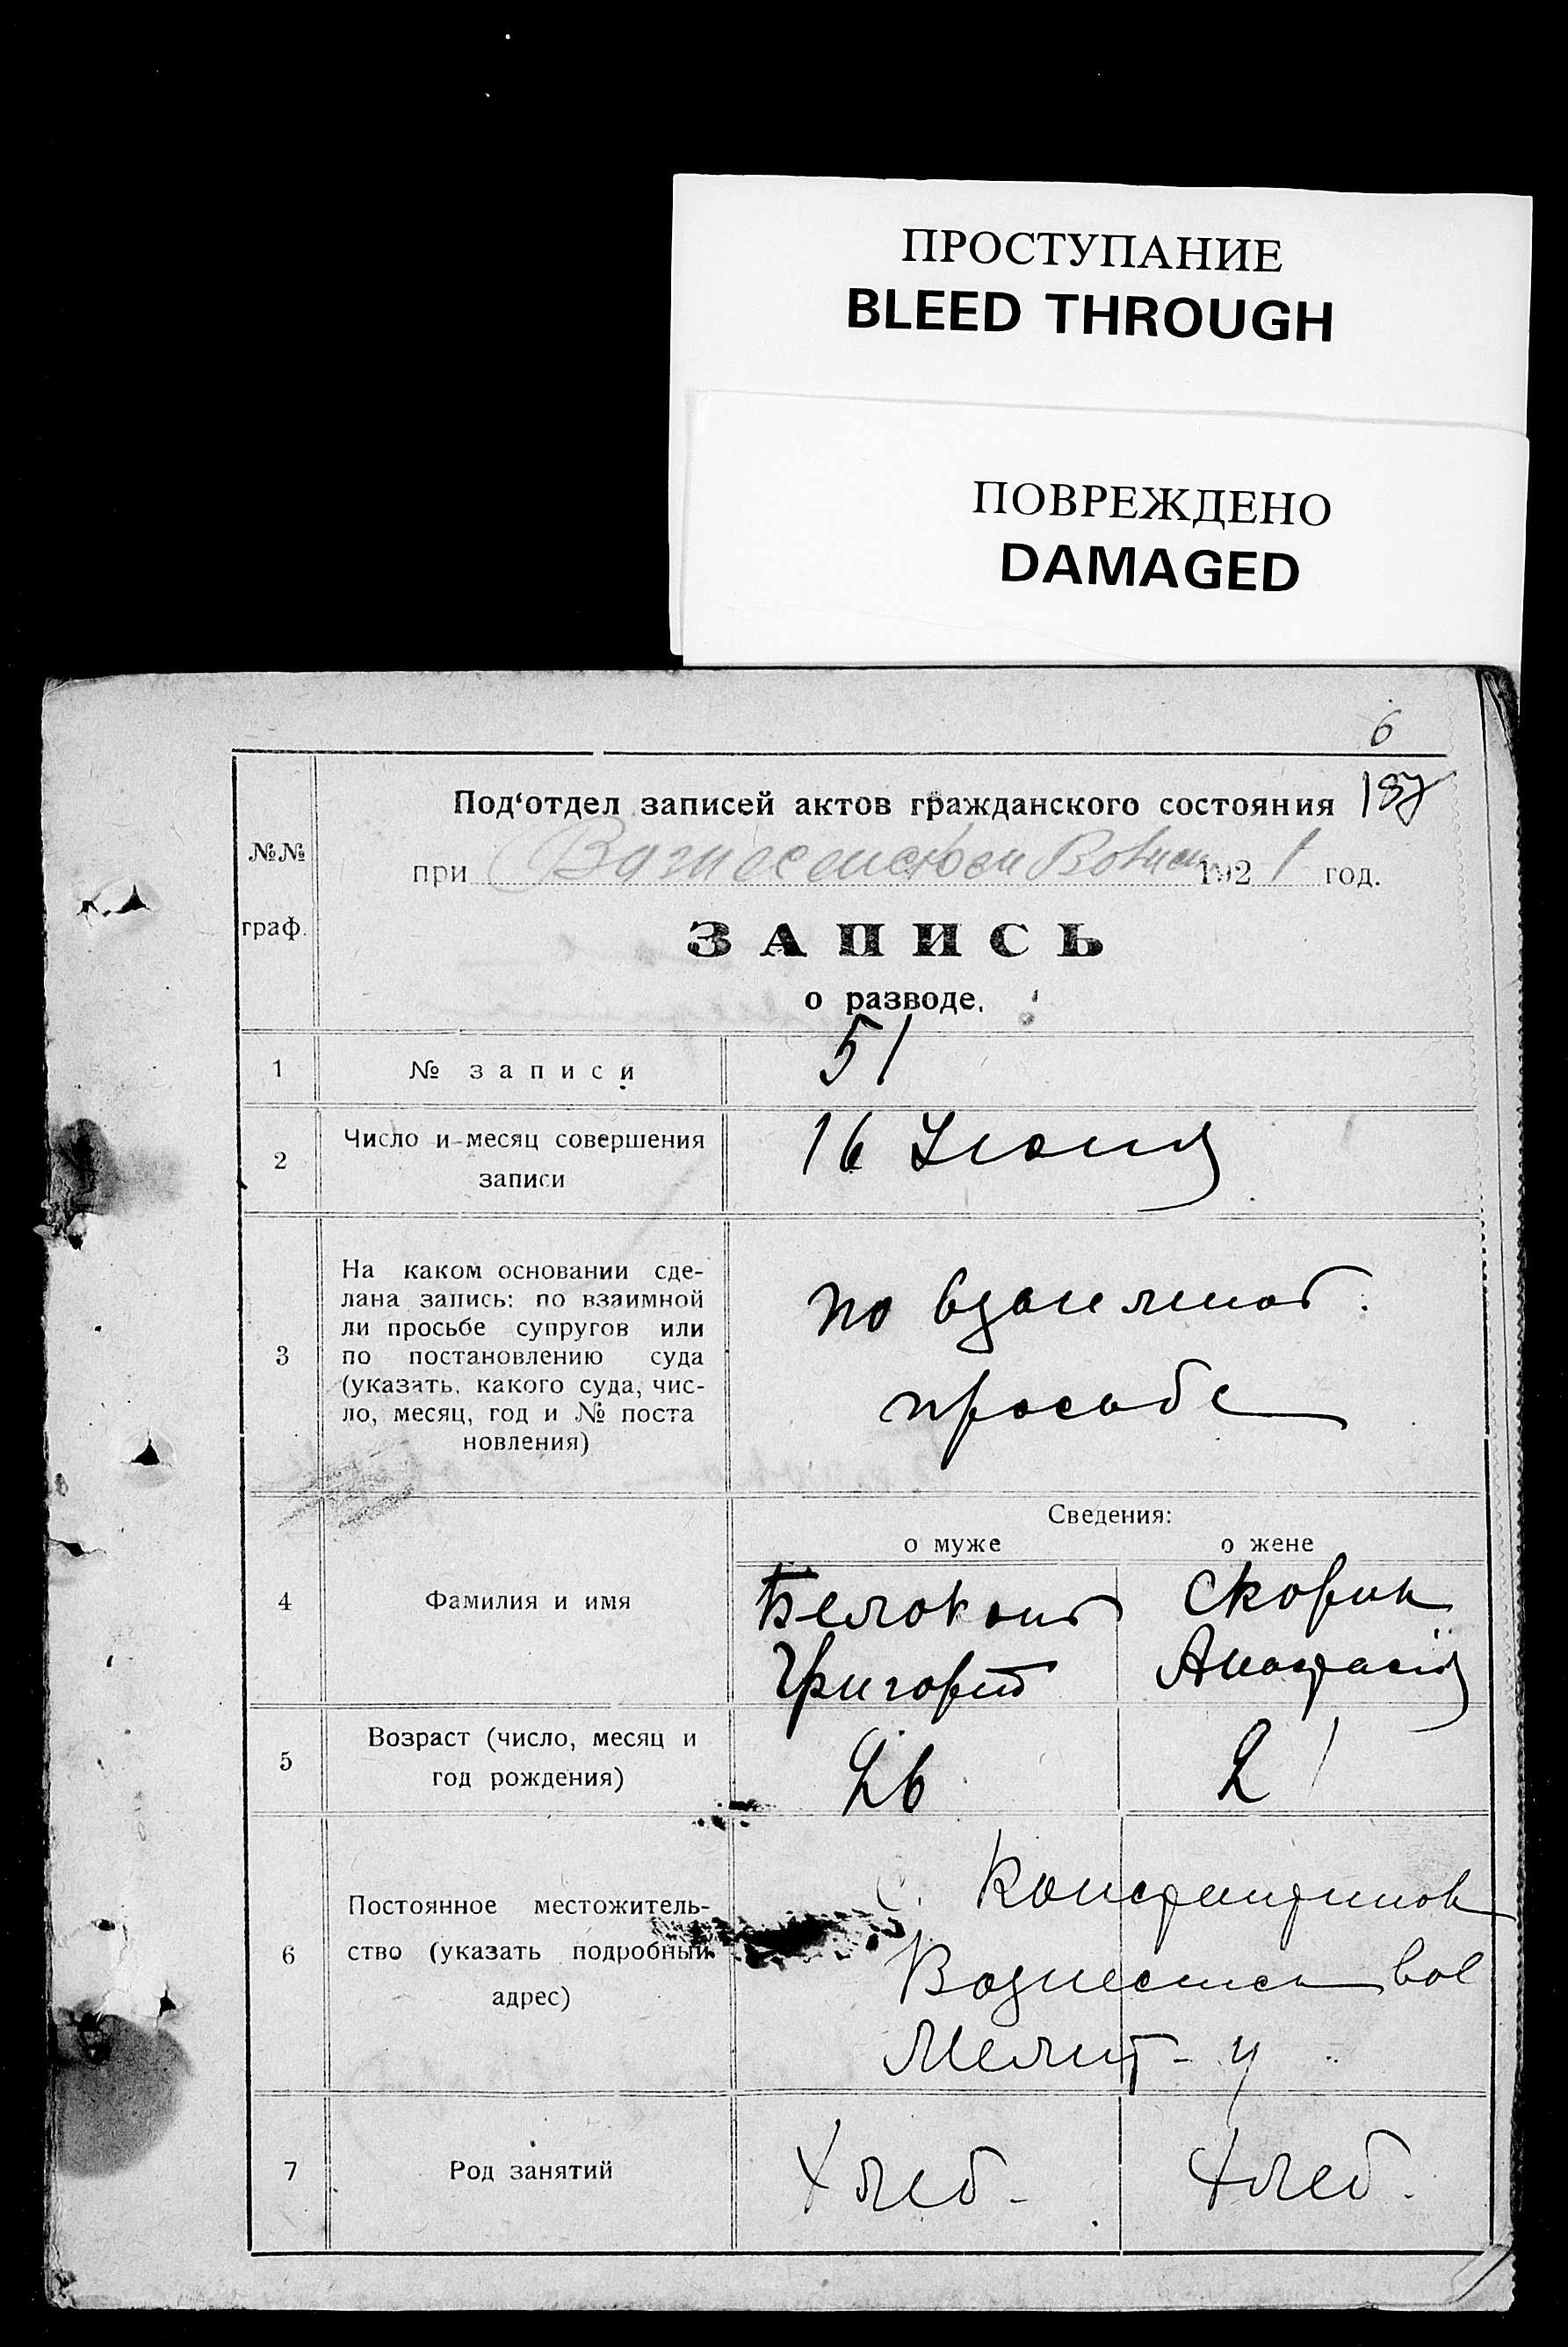 ПРОСТУПАНИЕ
BLEED THROUGH
ПОВРЕЖДЕНО
DAMAGED
6
Под‘отдел записей актов гражданского состояния
187
№№
граф.
при Вознесенском 1921 год.
ЗАПИСЬ
о разводе.
1 № записи 51
2 Число и месяц совершения
записи
16 Июня
3 На каком основании сде-
лана запись: по взаимной
ли просьбе супругов или
по постановлению суда
(указать, какого суда, чис-
ло, месяц, год и № поста
новления)
по взаимной
просьбе
Сведения:
о муже о жене
4 Фамилия и имя
Белоконь Скорик
Григорий Анастасія
5 Возраст (число, месяц и
год рождения)
26 21
6 Постоянное местожитель-
ство (указать подробный
адрес)
с. Константинов
Вознесенск вол
Мелит-у
7 Род занятий Хлеб- Хлеб.